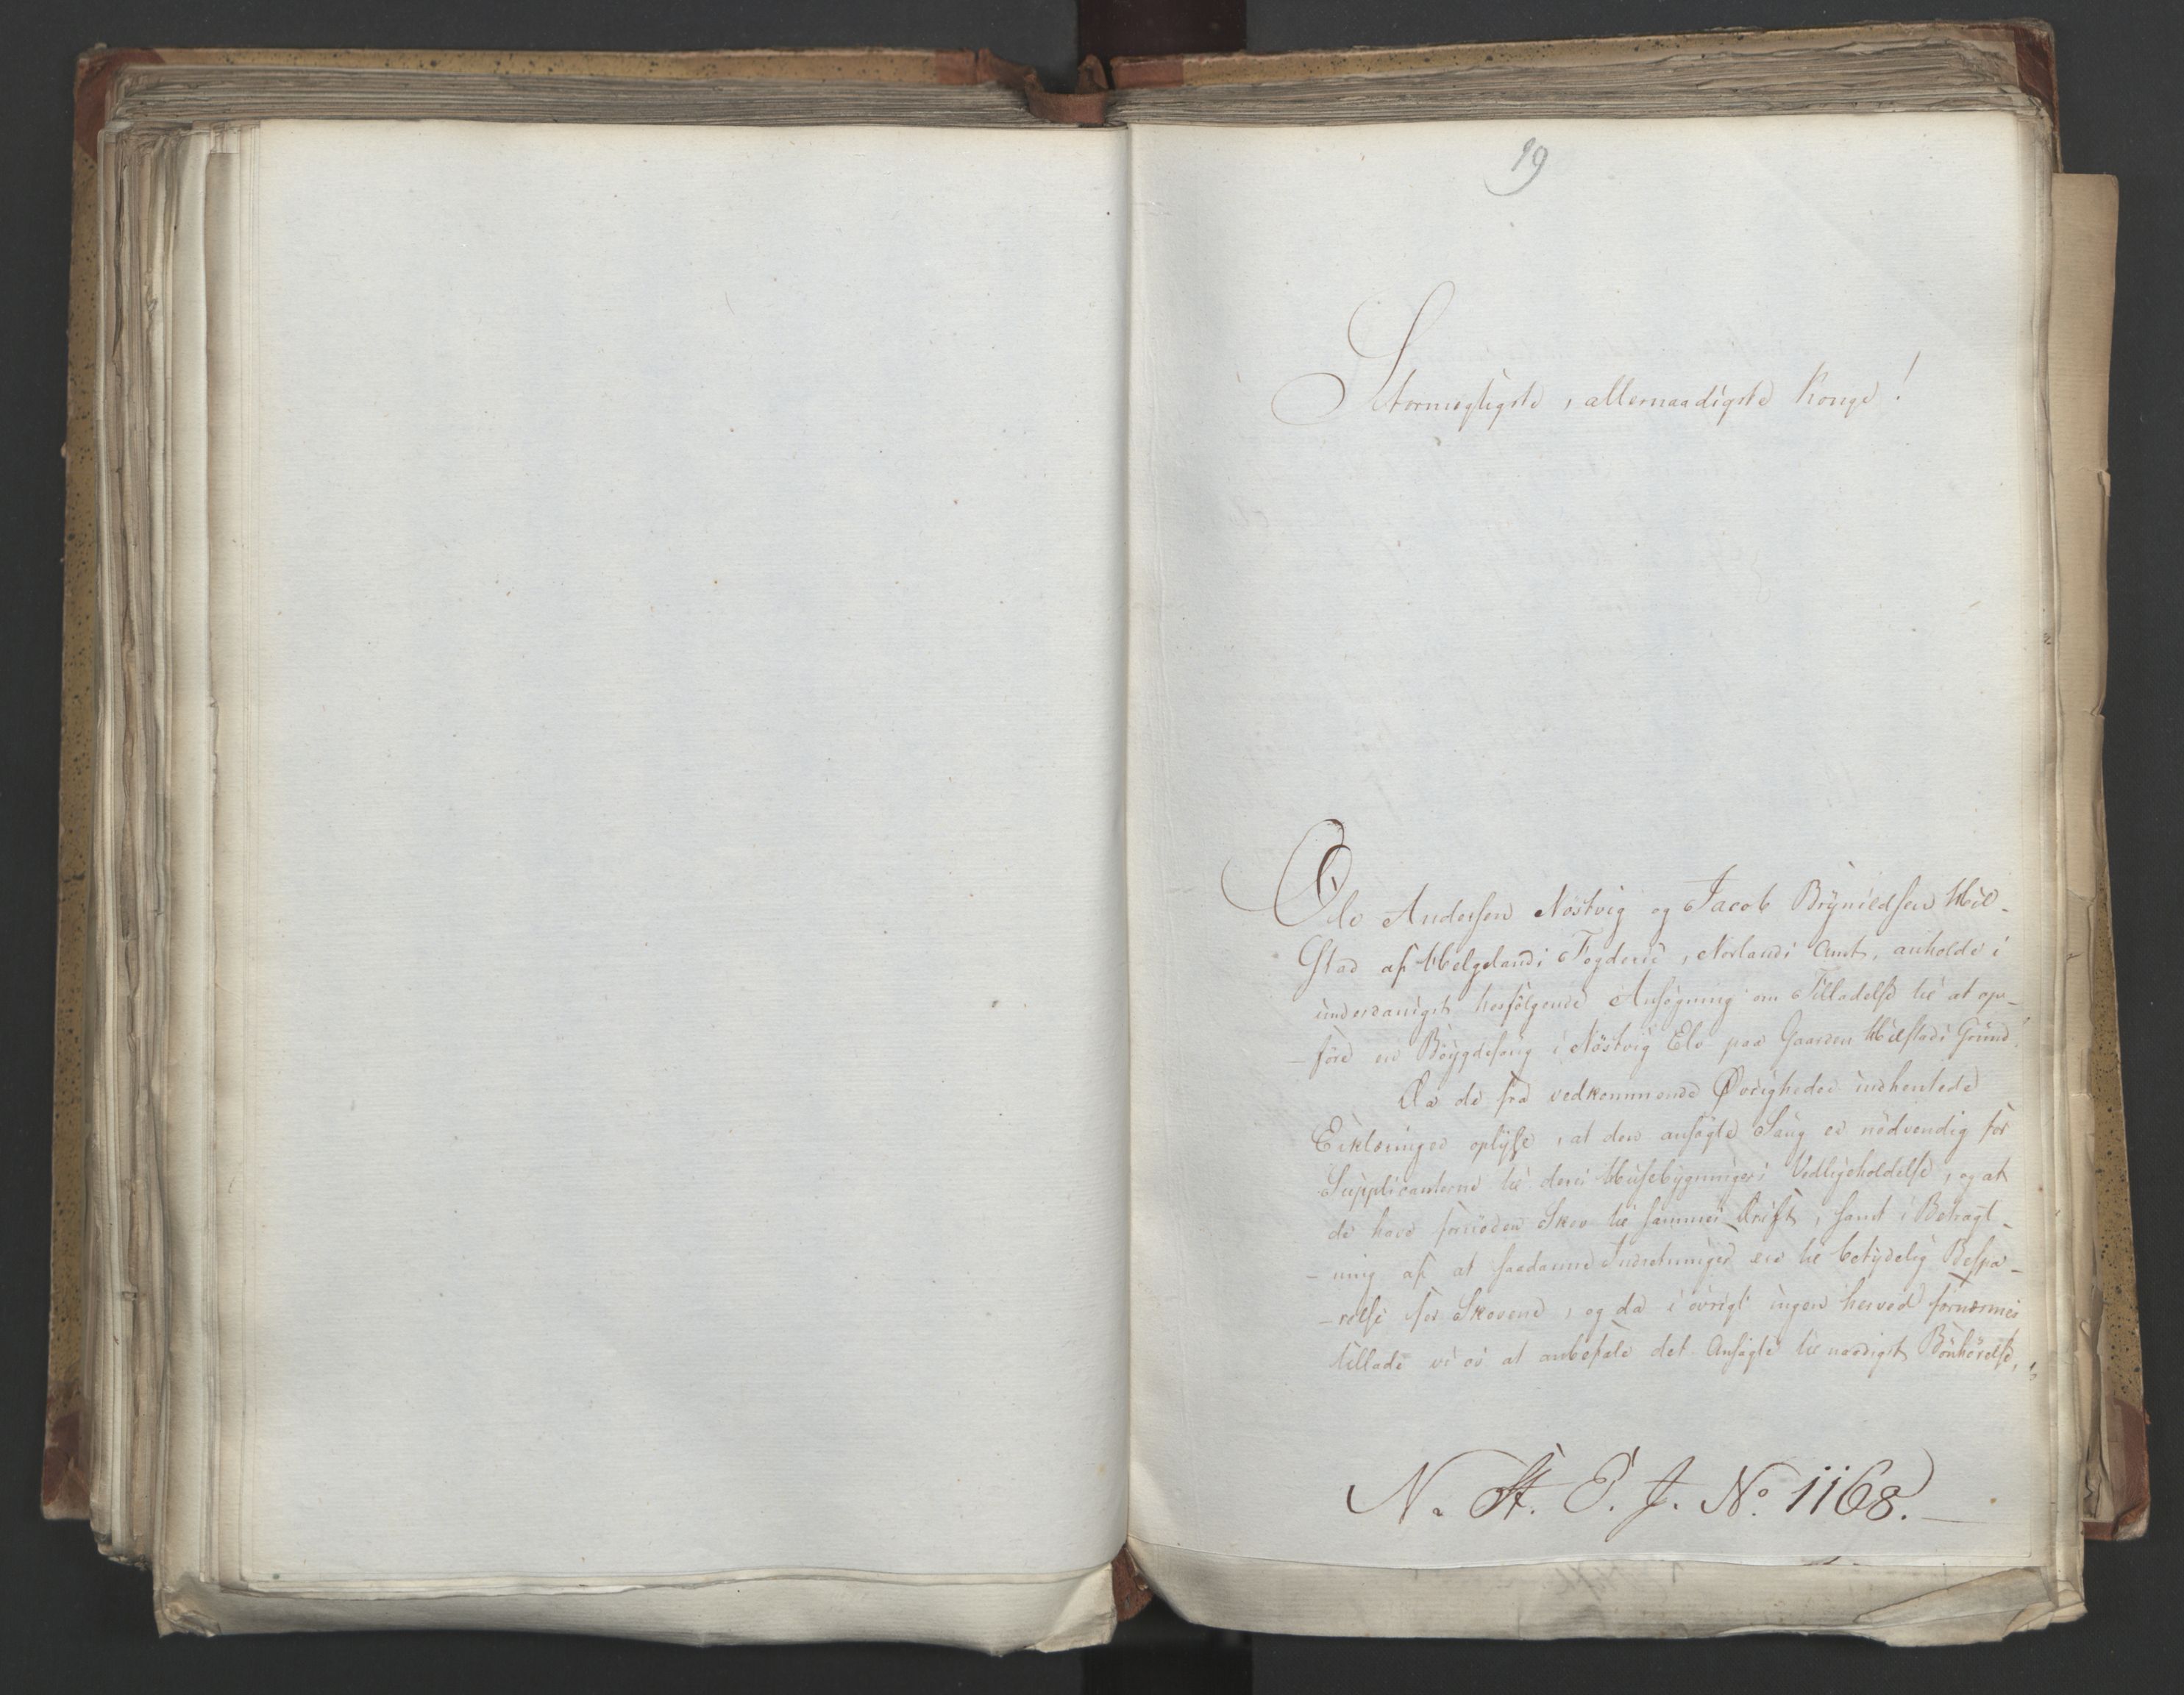 19
Stormægtigste, allernaadigste Konge!
Ole Andersen Nöstvig og Jacob Brÿnildsen Hil-
stad af Helgelands Fogderie, Norlands Amt, anholde i
underdanigst hosfölgende Ansögning om Tilladelse til at op-
-före en Böygdesaug i Nöstvig Elv paa Gaarden Hilstads Grund.
Da de fra vedkommende Øvrigheder indhentede
Erklæringer oplÿse, at den ansögte Saug er nödvendig for
Supplicanterne til deres Huusebygningers Vedligeholdelse, og at
de have fornöden Skov til sammes Drift, samt i Betragt-
-ning af at saadanne Indretninger ere til betÿdelig Bespa-
-relse for Skovene, og da i övrigt ingen herved fornærmes
tillade vi os at anbefale det Ansögte til naadigst Bönhörelse,
N. St. E. J. No. 1168.